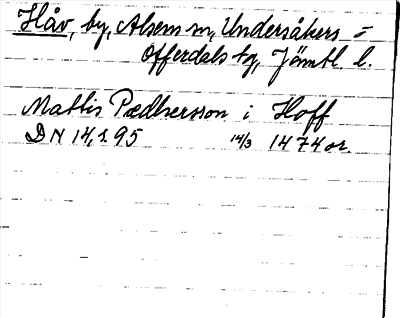 Håv, by, Alsens sn, Undersåkers o
Offerdals tg, Jämtl. l.
Mattis Pædhersson i Hoff
DN 14,1.95 14/3 1474 or.